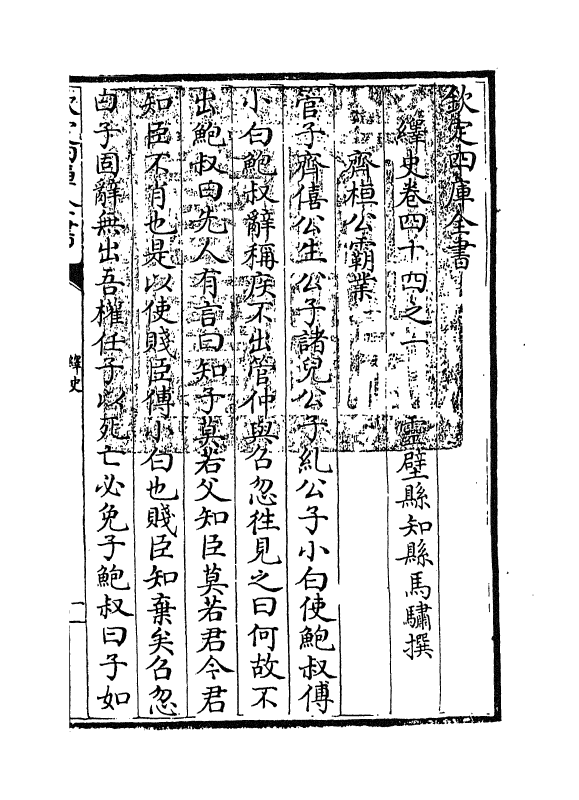 欽定四庫全書
繹史卷四十四之一
靈壁縣知縣馬驌撰
齊桓公霸業
管子齊僖公生公子諸兒公子糺公子小白使鮑叔傅
小白鮑叔辭稱疾不出管仲與召忽徃見之曰何故不
出鮑叔曰先人有言曰知子莫若父知臣莫若君今君
知臣不肖也是以使賤臣傅小白也賤臣知棄矣召忽
曰子固辭無出吾權任子以死亡必免子鮑叔曰子如
繹史